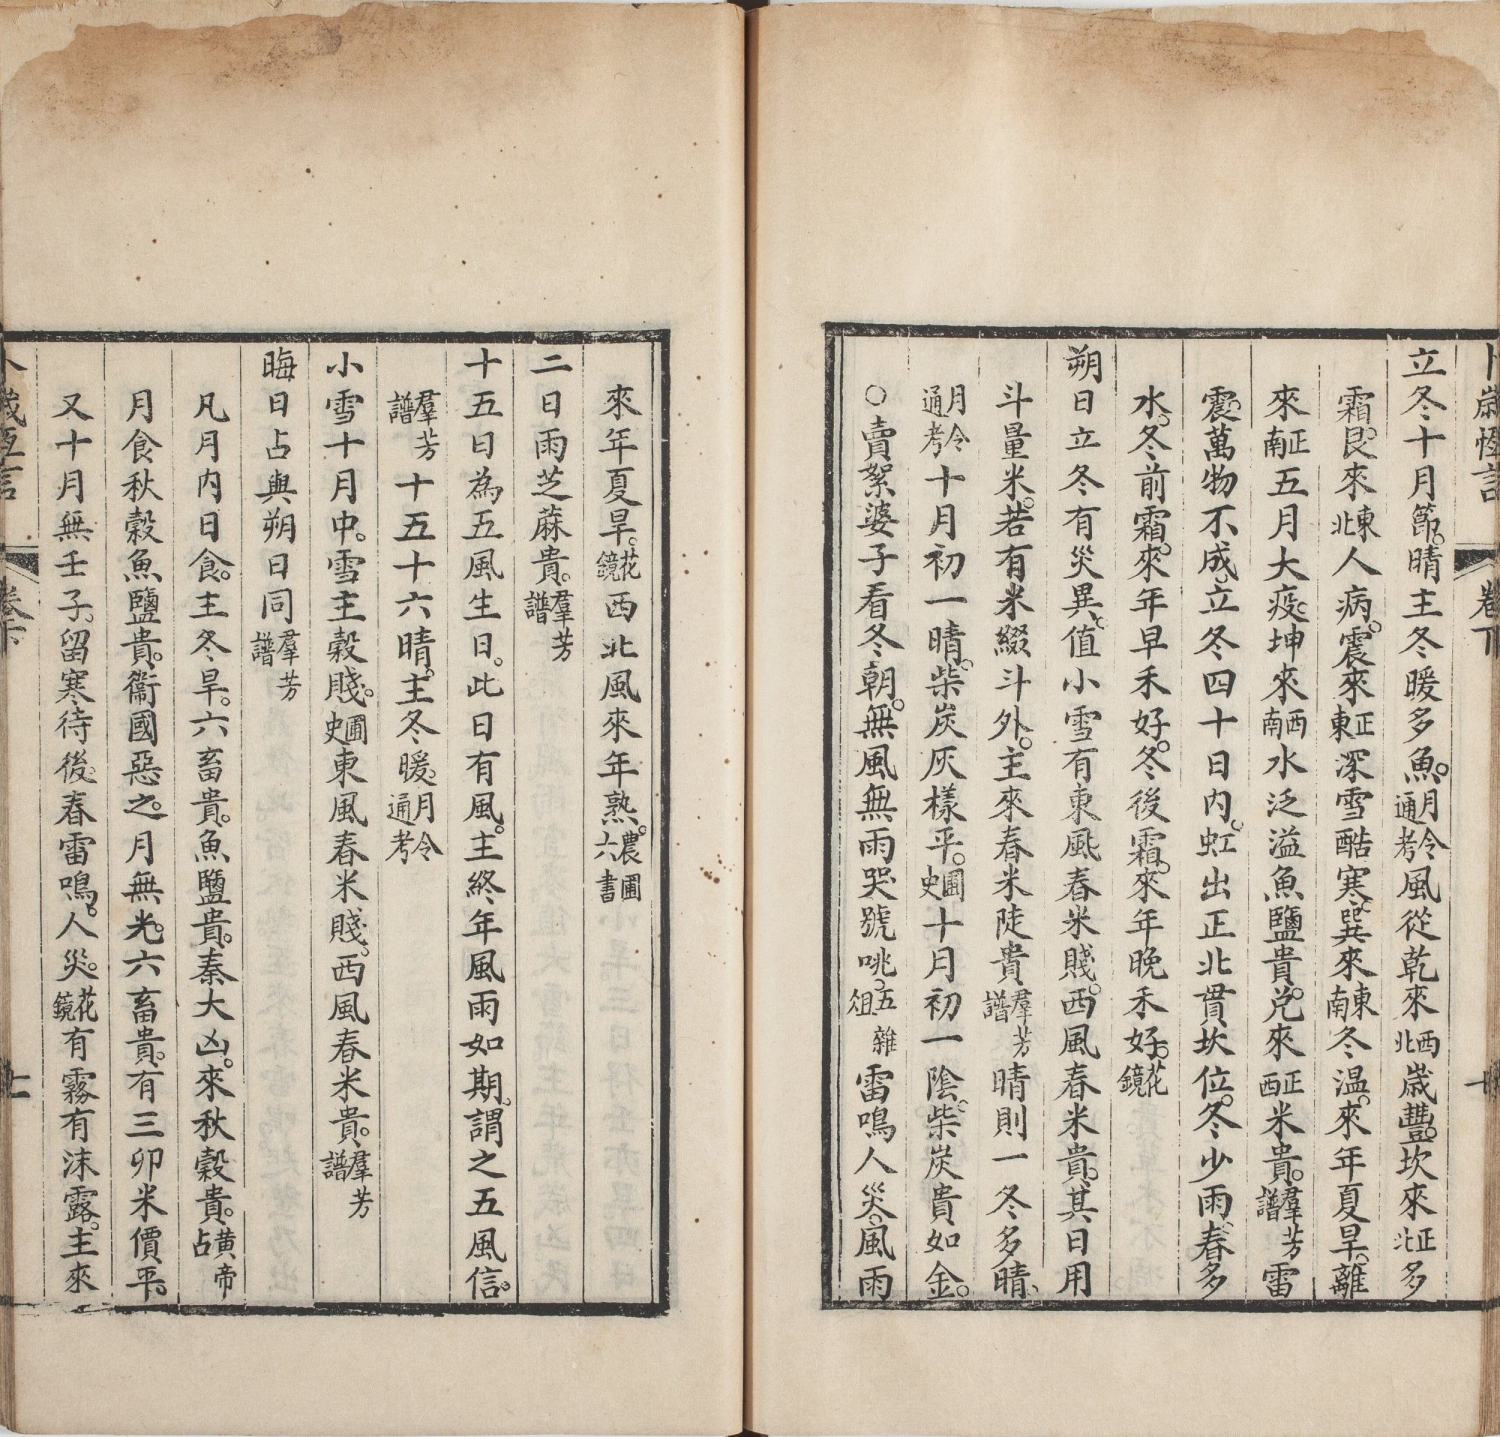 立冬十月節。晴主冬暖多魚。月令通考風從乾來西北歲豐。坎來正北多
霜。艮來東北人病。震來正東深雪酷寒。巽來東南冬温。來年夏旱。離
來正南五月大疫。坤來西南水泛溢魚鹽貴。兌來正西米貴。羣芳譜雷
震。萬物不成。立冬四十日内。虹出正北貫坎位。冬少雨。春多
水。冬前霜。來年早禾好。冬後霜。來年晚禾好。花鏡
朔日立冬有災異。值小雪有東風春米賤。西風春米貴。其日用
斗量米。若有米綴斗外。主來春米陡貴羣芳譜晴則一冬多晴。
月令通考十月初一晴。柴炭灰樣平。圃史十月初一陰。柴炭貴如金。
○賣絮婆子看冬朝。無風無雨哭號咷。五雜俎雷鳴人災。風雨
來年夏旱。花鏡西北風來年熟。農圃六書
二日雨芝蔴貴。羣芳譜
十五日為五風生日。此日有風。主終年風雨如期。謂之五風信。
羣芳譜十五十六晴。主冬暖。月令通考
小雪十月中。雪主穀賤。圃史東風春米賤。西風春米貴。羣芳譜
晦日占與朔日同羣芳譜
凡月内日食。主冬旱。六畜貴。魚鹽貴。秦大凶。來秋穀貴。黃帝占
月食秋穀魚鹽貴。衞國惡之。月無光。六畜貴。有三卯米價平。
又十月無壬子。留寒待後春雷鳴。人災。花鏡有霧有沫露。主來
卷下